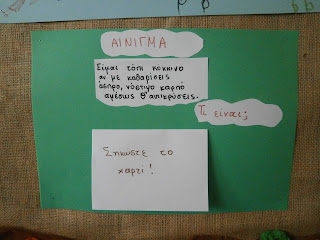 ΑΙΝΙΓΜΑ
Είμαι τόπι κόκκινο
αν με καθαρίσεις
άσπρο, νόστιμο καρπό
αμέσως θ' αντικρύσεις.
Τι είναι;
Σηκώστε το
χαρτί!